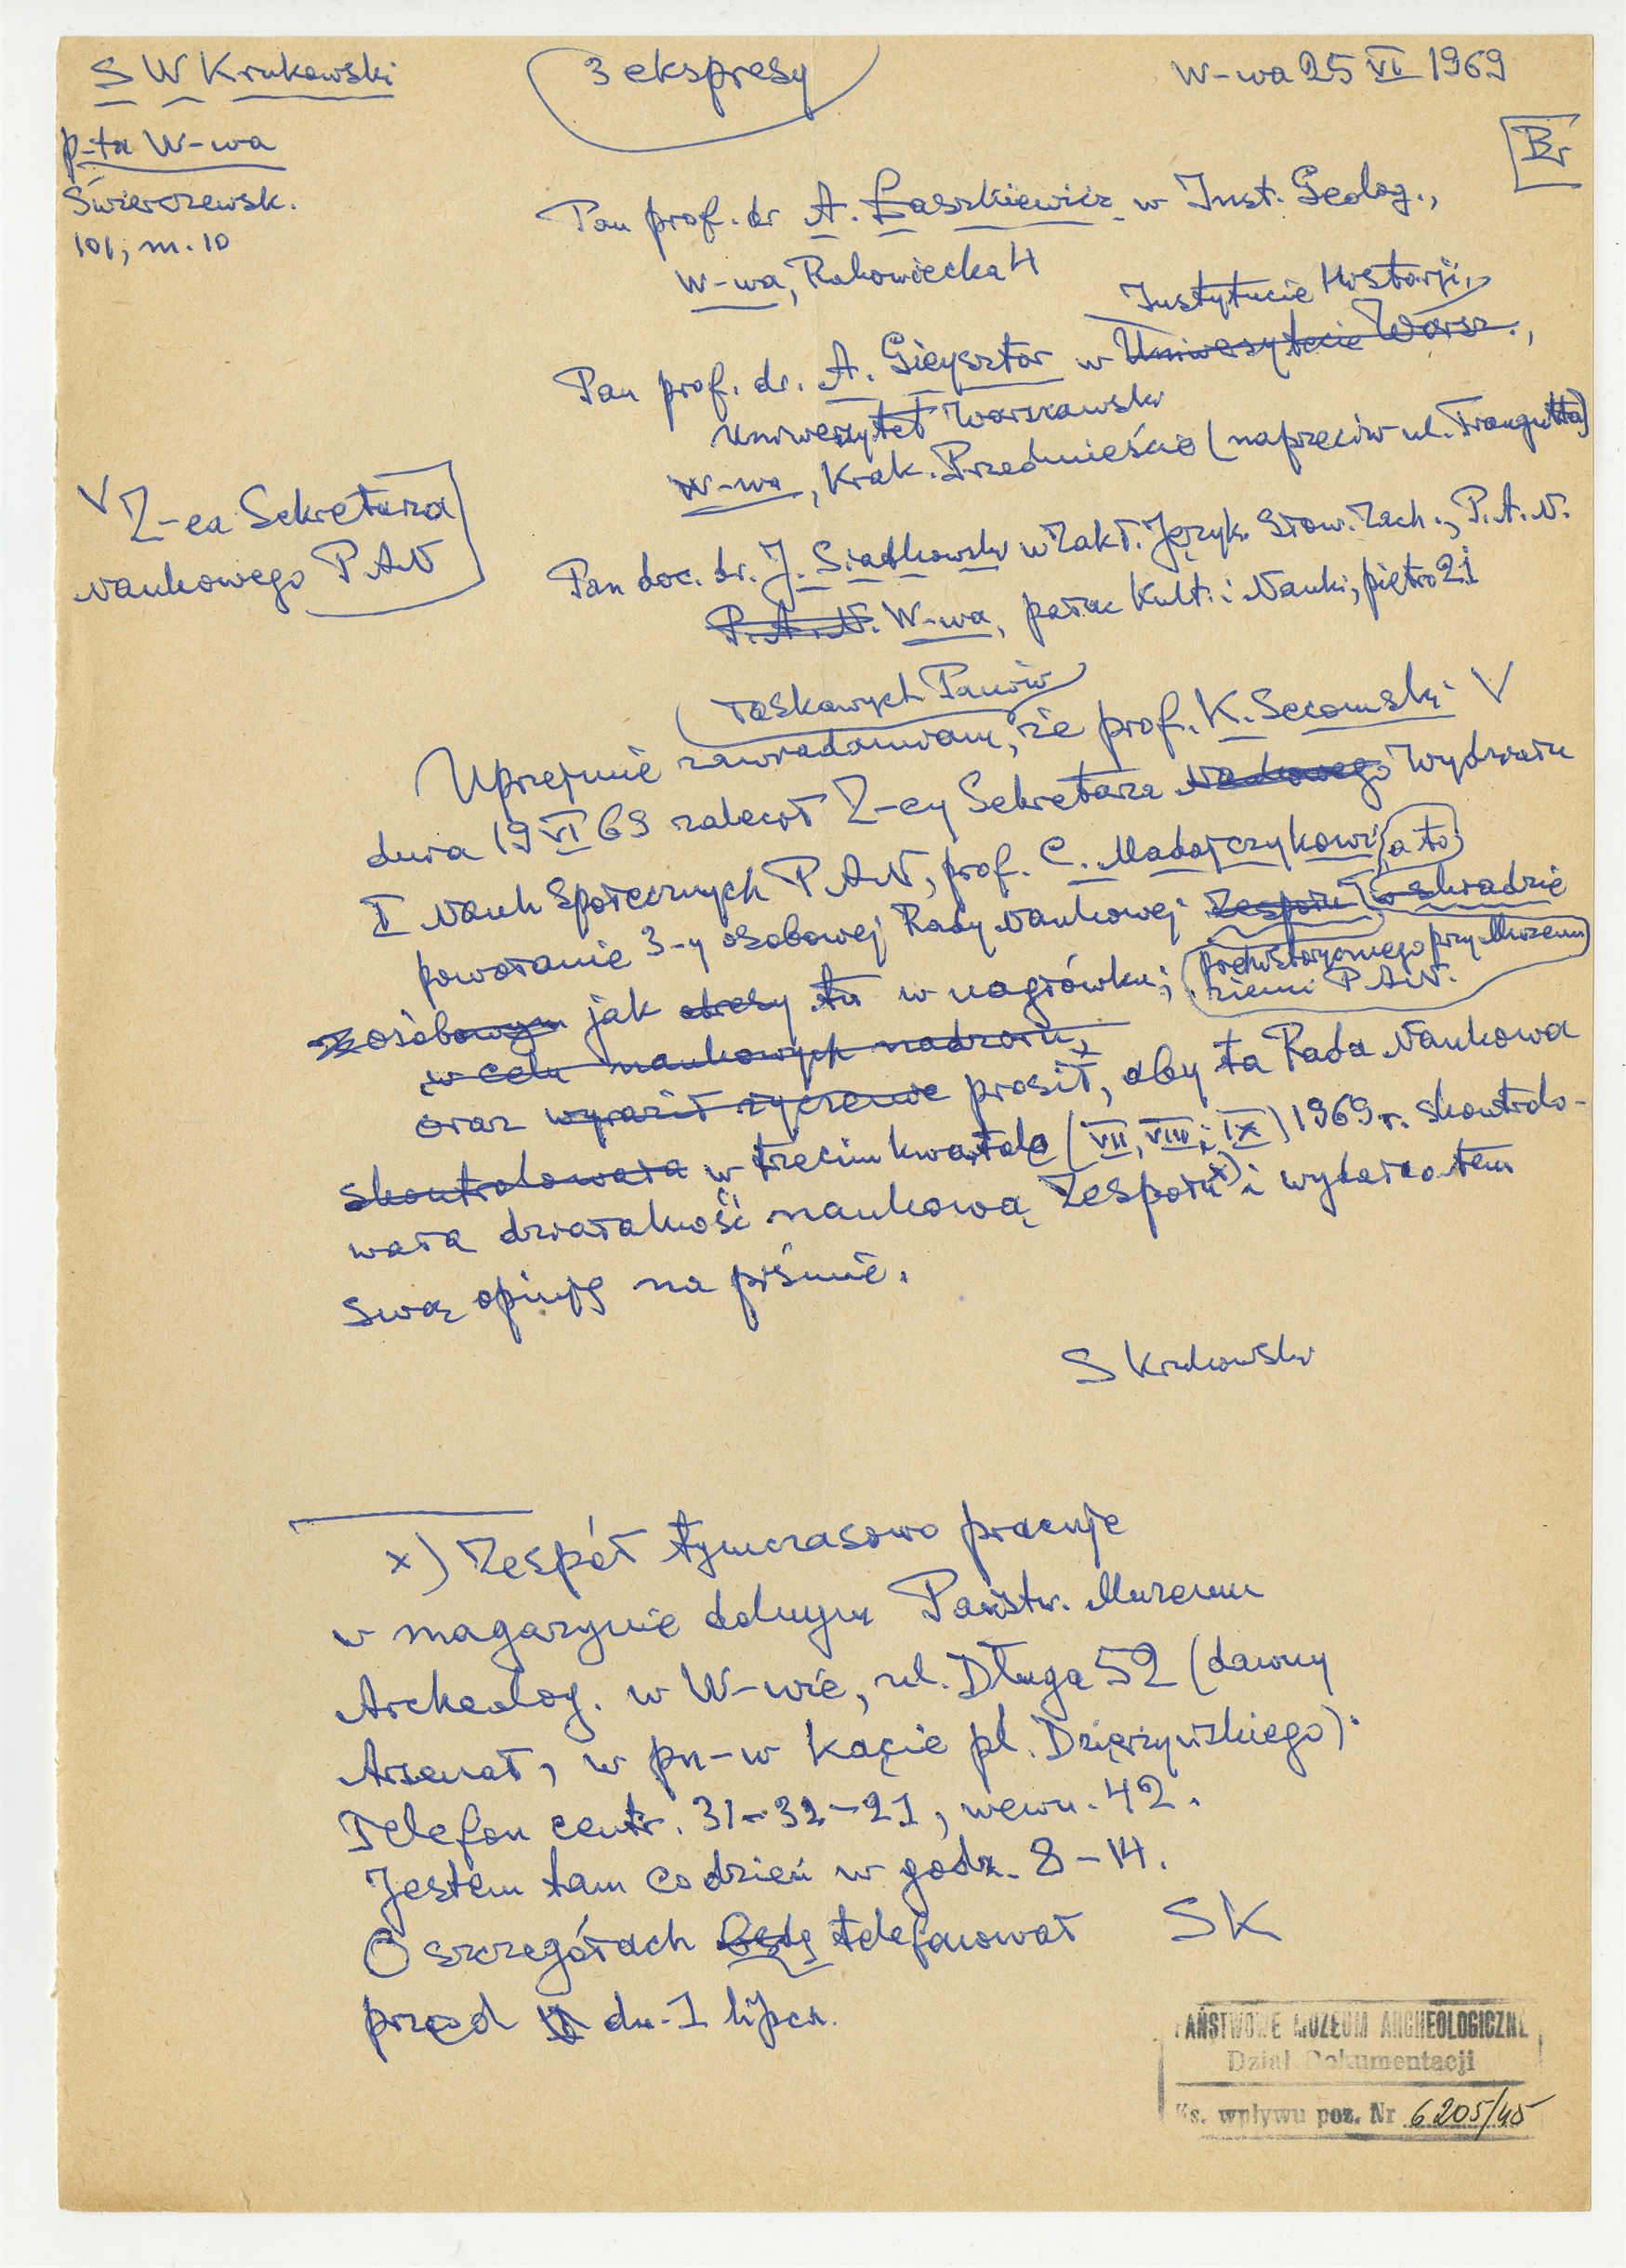 S W Krukowski
3 ekspresy
W-wa 25 VI 1969
p-ta W-wa
Świerczewsk.
101, m. 10
Br
Pan prof. dr A. Łaszkiewicz w Inst. Geolog.,
W-wa, Rakowiecka 4
Instytucie Historji,
Pan prof. dr. A. Gieysztor w Uniwersytecie Warsz.,
Uniwersytet Warszawski
W-wa, Krak. Przedmieście (naprzeciw ul. Traugutta)
V Z-ca Sekretarza
Naukowego PAN
Pan doc. dr. J. Siatkowski w Zakł. Język. Słow. Zach., P.A.N.
P.A.N. W-wa, pałac Kult. i Nauki, piętro 21
Łaskawych Panów
Uprzejmie zawiadamiam, że prof. K. Secomski V
dnia 19 VI 69 zalecił Z-cy Sekretarza Naukowego Wydziału
I Nauk Społecznych PAN, prof. C. Madajczykowi a to:
powołanie 3-y osobowej Rady Naukowej Zespołu w składzie
prehistorycznego przy Muzeum
ziemi PAN.
osobowym jak tu w nagłówku;
w celu naukowych nadzoru,
oraz wyraził życzenie prosił, aby ta Rada Naukowa
skontrolowała w trzecim kwartale (VII, VIII i IX) 1969 r. skontrolo-
wała działalność naukową Zespołu x) i wydała o tem
swą opinję na piśmie.
S Krukowski
x) Zespół tymczasowo pracuje
w magazynie dolnym Państw. Muzeum
Archeolog. w W-wie, ul. Długa 52 (dawny
Arsenał, w pn-w kącie pl. Dzierżyńskiego).
Telefon centr. 31-32-21, wewn. 42.
Jestem tam codzień w godz. 8-14.
O szczegółach będę telefonował SK
przed dn. 1 lipca.
PAŃSTWOWE MUZEUM ARCHEOLOGICZNE
Dział Dokumentacji
Ks. wpływu poz. Nr 6205/45